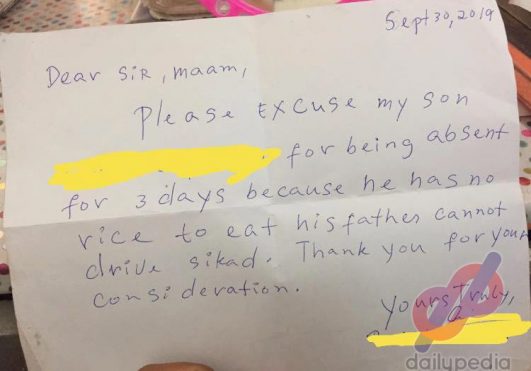 Sept 30, 2019
Dear SiR, maam,
Please Excuse my son
for being absent
for 3 days because he has no
rice to eat his father cannot
drive sikad. Thank you for your
consideration.
Yours Truly,
dailypedia